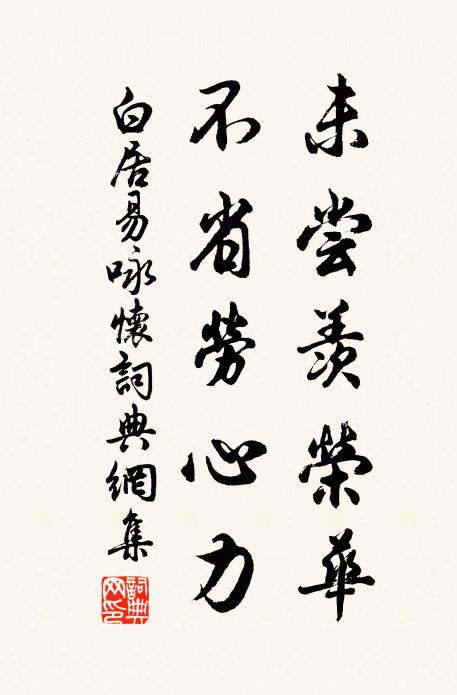 未尝羡榮華
不省勞心力
白居易咏懷詞典網集
詞典网印